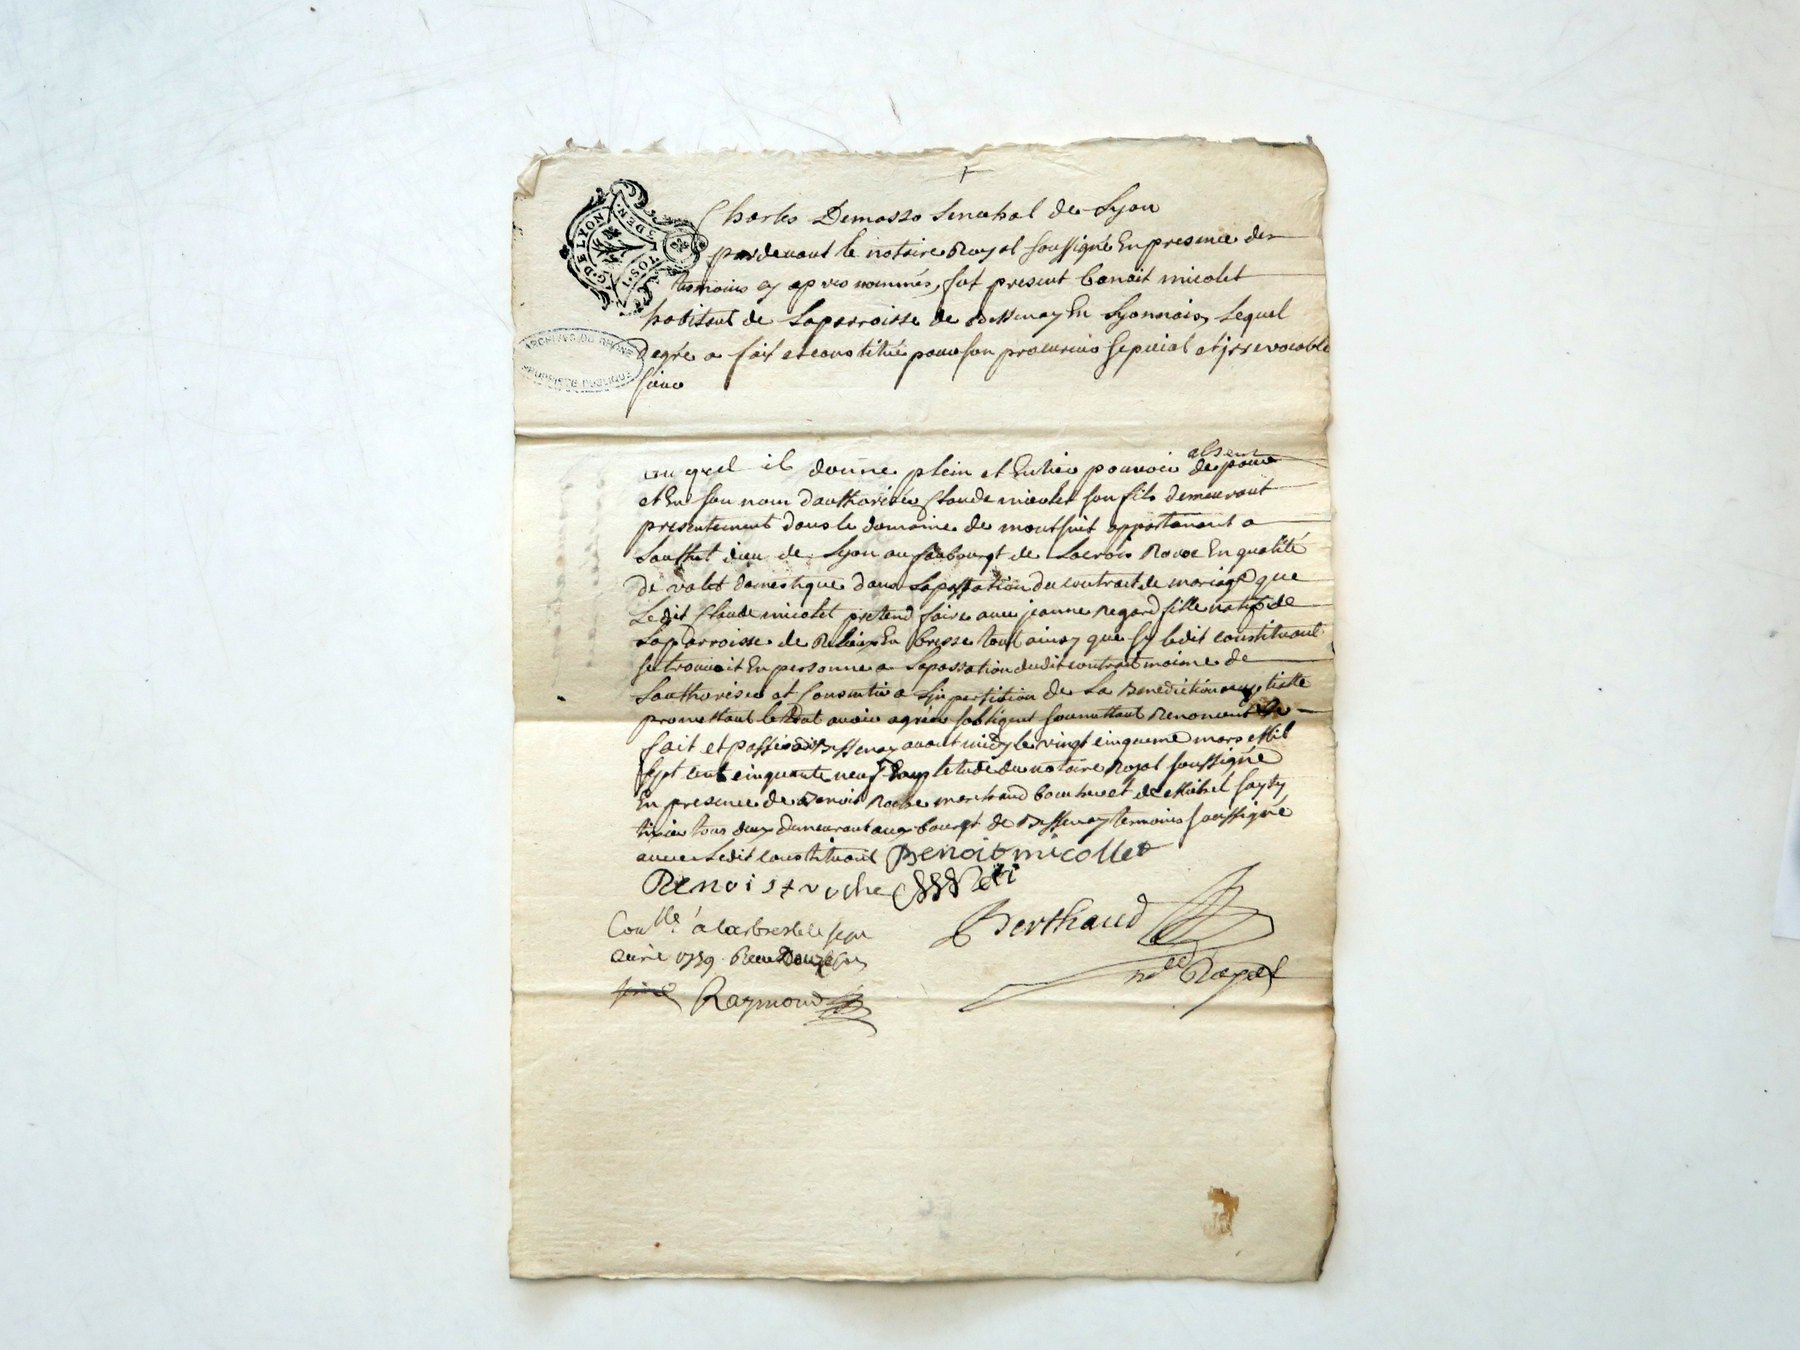 G. DE LYON
DEN.
Charles Demasso Senechal de Lyon
pardevant le notaire Royal soussigné En presence des
temoins cy apres nommés, fut present benoit micolet
habitant de Laparroisse de Bessenay En Lyonnois, Lequel
degré a fait et constitué pour son procureur special et jrrevocable
sieur
ARCHIVES DU RHONE
PROPRIÉTÉ PUBLIQUE
auquel il donne plein et Entier pouvoir de pour
et En son nom d'authoriser Claude micolet son fils demeurant
presentement dans le domaine de appartenant a
Lauthel dieu de Lyon au faubourgt de Lacroix Rousse En qualité
de valet domestique dans Lapassation du contract de mariage que
Ledit Claude micolet pretend faire avec jeanne Regard fille natif de
Laparroisse de En bresse tout ainsy que sy ledit constituant
se trouvoit En personne a Lapassation dudit contract moime de
Lauthoriser et Consentir a Linpartition de La Benediction
promettant le tout avoir agréer sobligent soumettant Renoncent
fait et passé a Bessenay avant midy le vingt cinqueme mars Mil
sept cent cinquante neuf dans letude du notaire Royal soussigné
En presence de Benoit Roche marchand boucher et de Michel
tixier tous deux demeurant aux bourgt de Bessenay temoins soussigné
avec Ledit constituant Benoit micollet
Benoist roche
Berthaud
nre Royal
Conlle. à larbresle le sept
avril 1759. Receu Douze sous
Raymond